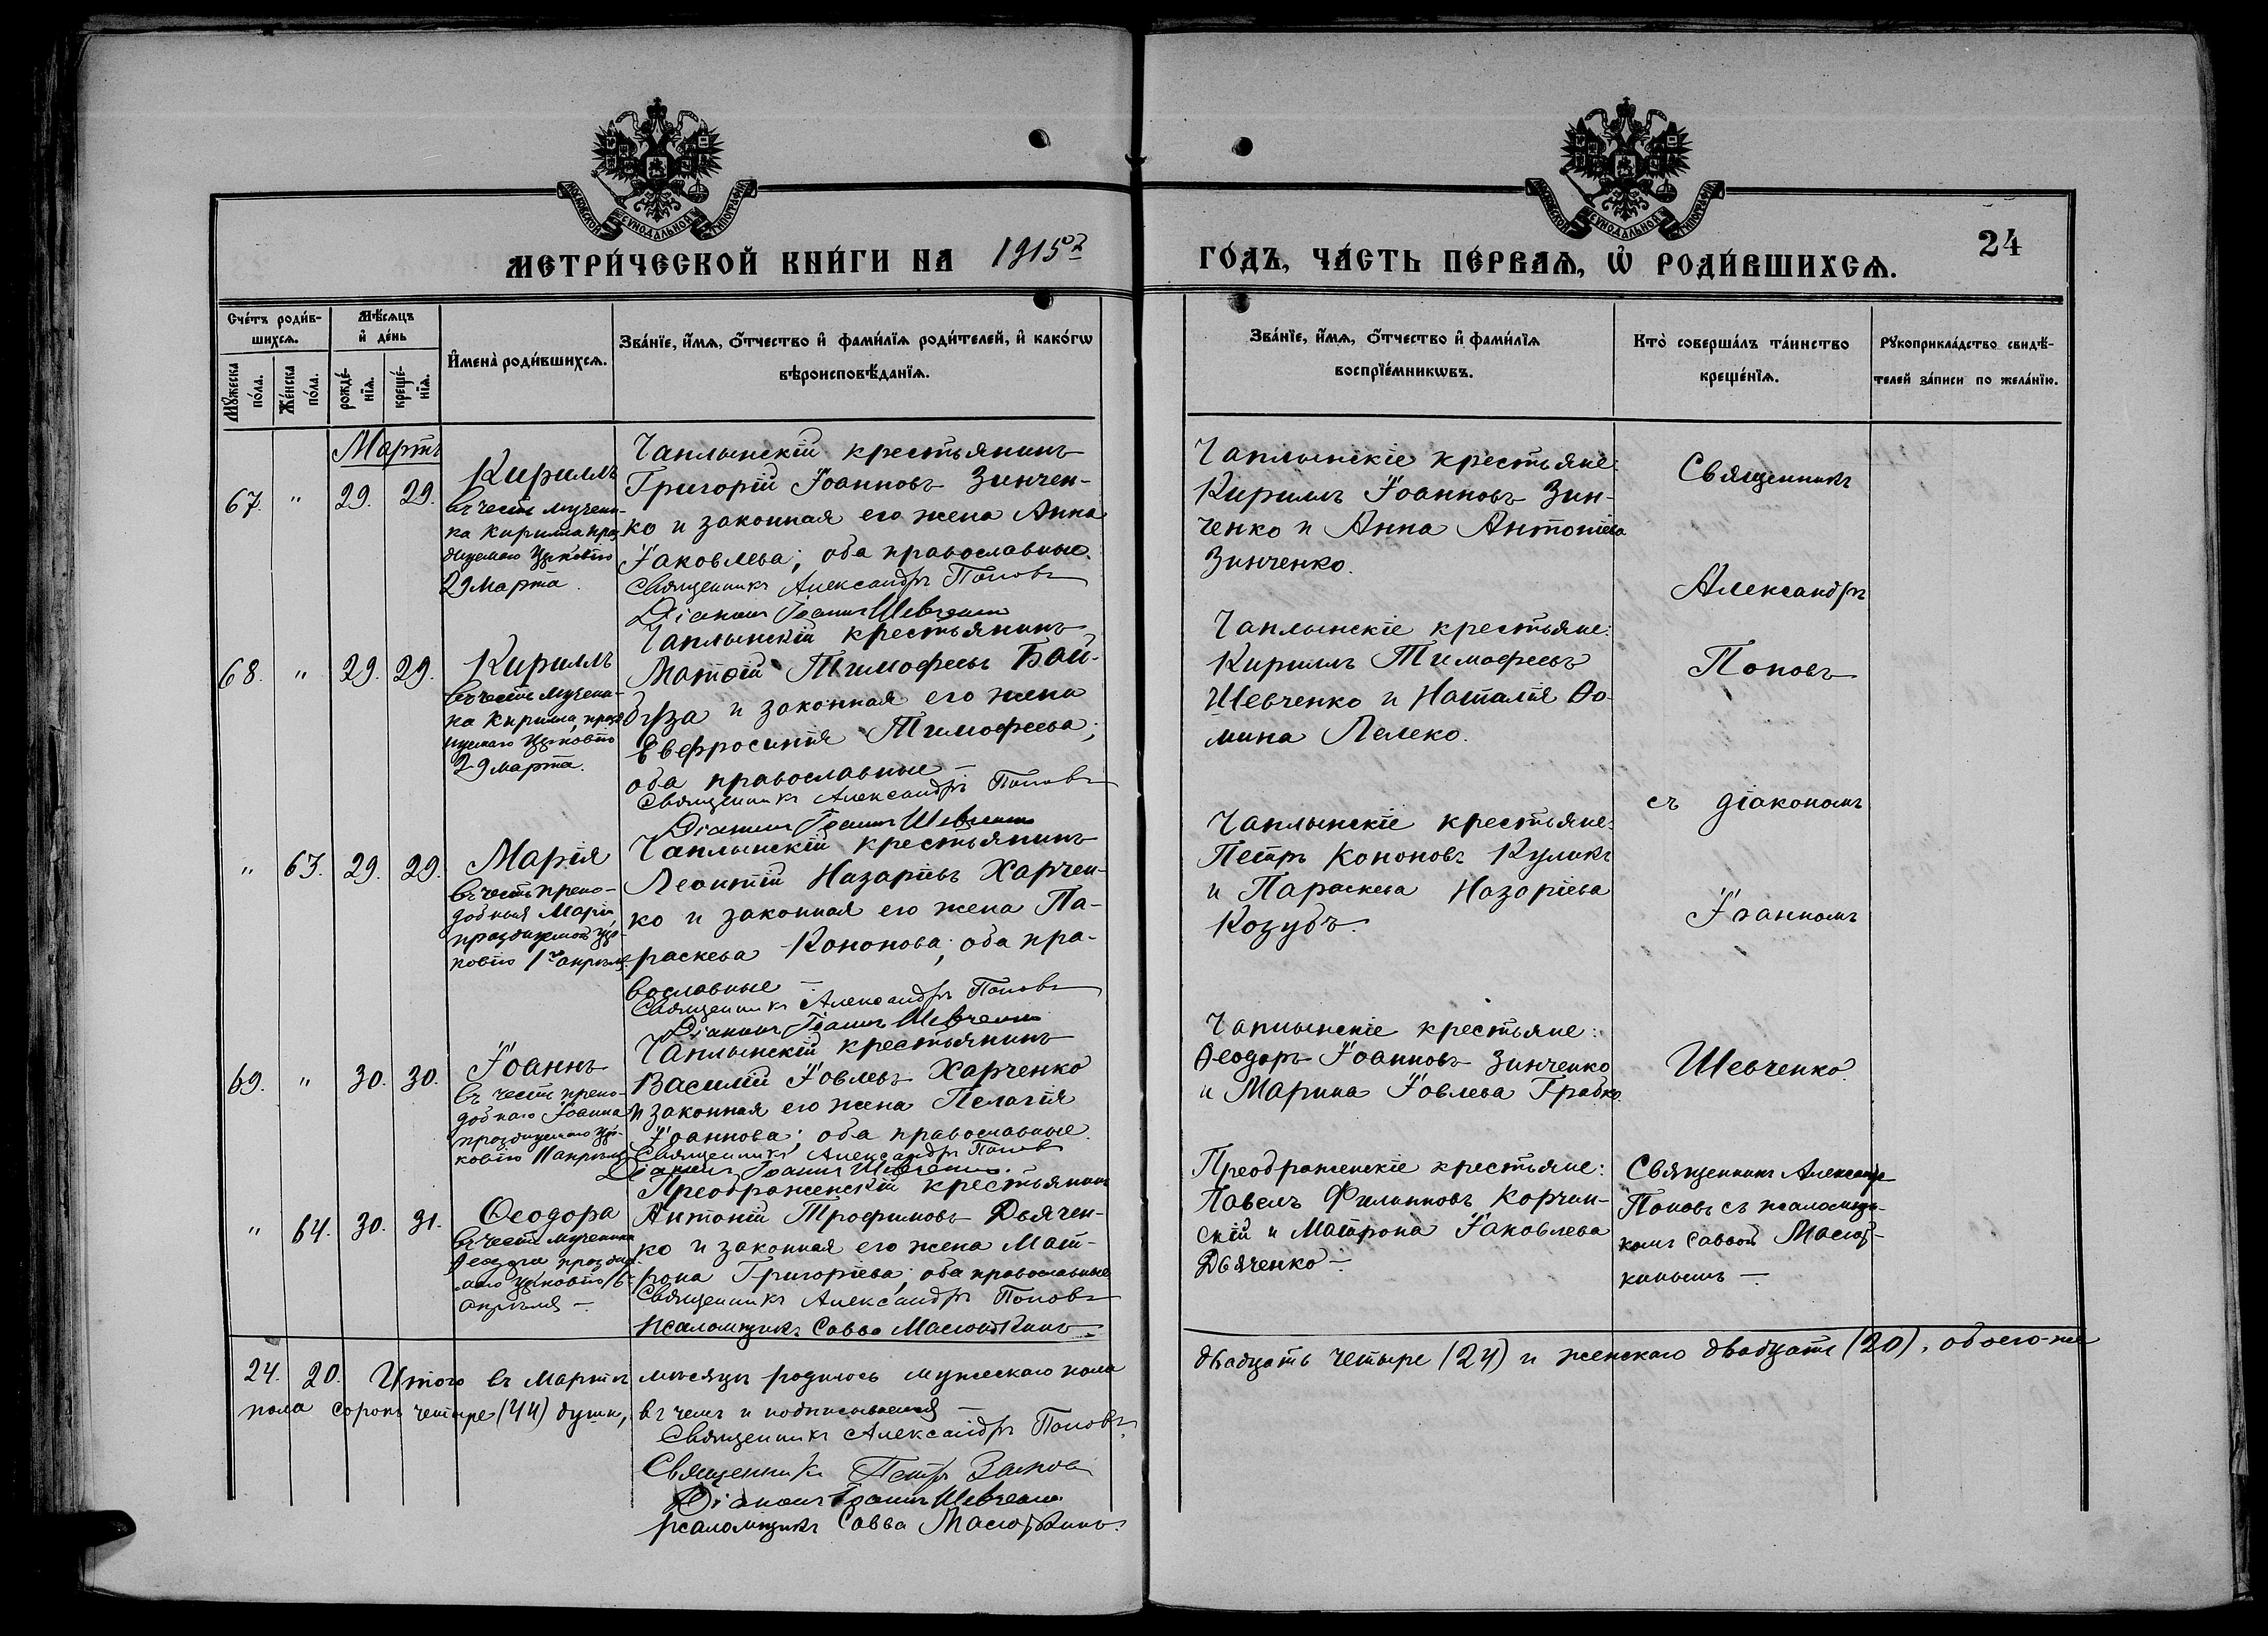 МОСКОВСКОЙ СѴНОДАЛЬНОЙ ТИПОГРАФІИ
МОСКОВСКОЙ СѴНОДАЛЬНОЙ ТИПОГРАФІИ
МЕТРИ́ЧЕСКОЙ КНИ́ГИ НА 1915й
ГО́ДЪ, ЧА́СТЬ ПЕ́РВАѦ, Ѽ РОДИ́ВШИХСѦ.
24
Сче́тъ роди́в-
шихсѧ.
Мѣ́сѧцъ
и҆ де́нь
Мꙋ́жеска
по́ла.
Же́нска
по́ла.
рожде́-
нїѧ.
креще́-
нїѧ.
И҆мена̀ роди́вшихсѧ.
Зва́нїе, и҆́мѧ, ѻ҆́тчество и҆ фами́лїѧ роди́телей, и҆ како́гѡ
вѣроисповѣ́данїѧ.
Зва́нїе, и҆́мѧ, ѻ҆́тчество и҆ фами́лїѧ
воспрїе́мникѡвъ.
Кто̀ соверша́лъ та́инство
креще́нїѧ.
Рꙋкоприкла́дство свидѣ́-
телей за́писи по жела́нїю.
Мартъ
67. " 29. 29.
Кириллъ
въ честь мучени-
ка Кирилла праз-
днуемаго Церковію
29 Марта.
Чаплынскій крестьянинъ
Григорій Іоанновъ Зинчен-
ко и законная его жена Анна
Іаковлева; оба православные.
Священникъ Александръ Поповъ
Діаконъ Іоаннъ Шевченко
Чаплынскіе крестьяне:
Кириллъ Іоанновъ Зин-
ченко и Анна Антоніева
Зинченко.
Священникъ
Александръ
Поповъ
съ діакономъ
Іоанномъ
Шевченко.
68. " 29. 29.
Кириллъ
въ честь мучени-
ка Кирилла, празд-
нуемаго Церковію
29 марта.
Чаплынскій крестьянинъ
Матѳій Тимофеевъ Бай-
буза и законная его жена
Евфросинія Тимофеева;
оба православные —
Священникъ Александръ Поповъ
Діаконъ Іоаннъ Шевченко
Чаплынскіе крестьяне:
Кириллъ Тимофеевъ
Шевченко и Наталія Ѳо-
мина Лелеко.
" 63. 29. 29.
Марія
въ честь препо-
добныя Маріи,
празднуемой Цер-
ковію 1го апрѣля.
Чаплынскій крестьянинъ
Леонтій Назаріевъ Харчен-
ко и законная его жена Па-
раскева Кононова; оба пра-
вославные —
Священникъ Александръ Поповъ
Діаконъ Іоаннъ Шевченко
Чаплынскіе крестьяне:
Петръ Кононовъ Куликъ
и Параскева Назаріева
Козубъ.
69. " 30. 30.
Іоаннъ
въ честь препо-
добнаго Іоанна
празднуемаго Цер-
ковію 11 апрѣля
Чаплынскій крестьянинъ
Василій Іовлевъ Харченко
и законная его жена Пелагія
Іоаннова; оба православные.
Священникъ Александръ Поповъ
Діаконъ Іоаннъ Шевченко.
Чаплынскіе крестьяне:
Ѳеодоръ Іоанновъ Зинченко
и Марина Іовлева Грабко.
" 64. 30. 31.
Ѳеодора
въ честь мученика
апрѣля —
Преображенскій крестьянинъ
Антоній Трофимовъ Дьячен-
ко и законная его жена Мат-
рона Григоріева; оба православные
Священникъ Александръ Поповъ
Псаломщикъ Савва Масюткинъ.
Преображенскіе крестьяне:
Павелъ Филипповъ Корчин-
скій и Матрона Іаковлева
Дьяченко —
Священникъ Александръ
Поповъ съ псаломщи-
комъ Саввой Масют-
кинымъ —
24. 20. Итого въ Мартѣ мѣсяцѣ родилось мужескаго пола двадцать четыре (24) и женскаго двадцать (20), обоего-же
пола сорокъ четыре (44) души, въ чемъ и подписываемся —
Священникъ Александръ Поповъ.
Священникъ Петръ
Діаконъ Іоаннъ Шевченко
псаломщикъ Савва Масюткинъ.